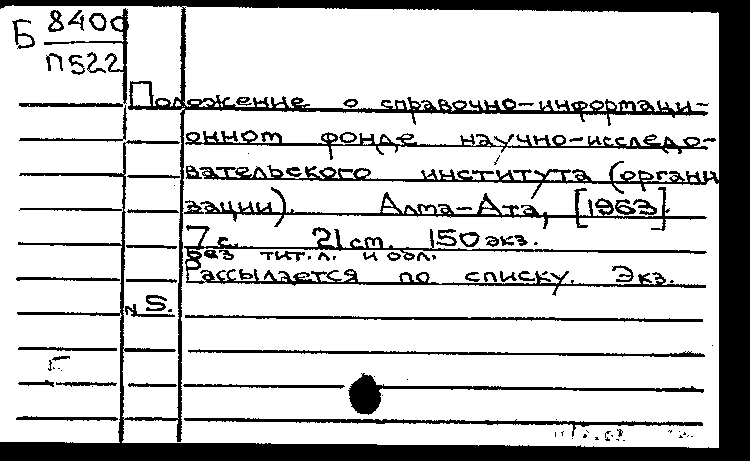 Б 8400
П522
Положение о справочно-информаци-
онном фонде научно-исследо-
вательского института (органи
зации). Алма-Ата, [1963].
7 с. 21 см. 150 экз.
Без тит. л. и обл.
Рассылается по списку. Экз.
N 5.